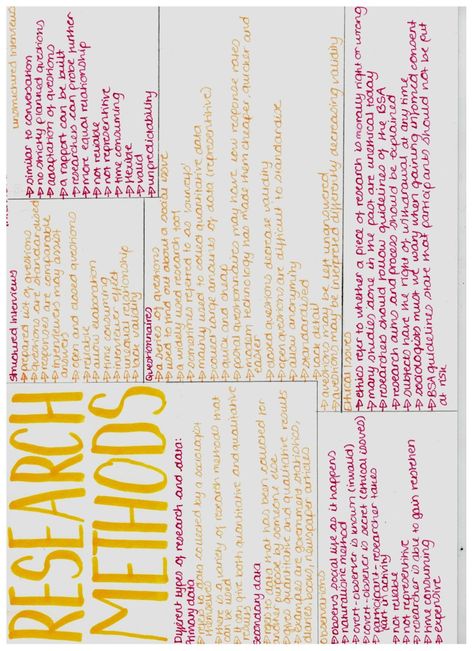 RESEARCH
METHODS
Different types of research and data:
Primary data
→ refers to data collected by a sociologist
themselves
→ there are a variety of research methods that
can be used
→ gives you both quantitative and qualitative
results
Secondary data
→ refers to data that has been collected for
sociologists by someone else
→ gives quantitative and qualitative results
→ examples are government statistics,
diaries, novels, newspaper articles
Observations
→ observes social life as it happens
→ naturalistic method
→ overt-observer is known (invalid)
→ covert-observer is secret (ethical issues)
→ participant-researcher takes
part in activity
→ not reliable
→ not representative
→ researcher is able to gain
→ time consuming
→ expensive
Structured Interviews
→ prepared list of questions
→ questions are standardised
→ responses are comparable
→ interviewers may assist
answers
→ open and closed questions
→ reliable
→ allow elaboration
→ time consuming
→ interviewer effect
→ unequal relationship
→ lack validity
Questionnaires
→ a series of questions
→ used to find out about a social issue
→ a widely used research tool
→ sometimes referred to as 'surveys'
→ mainly used to collect quantitative data
→ collect large amounts of data (representative)
→ relatively cheap
→ postal questionnaires may have low response rates
→ modern technology has made them cheaper quicker and
easier
→ closed questions decrease validity
→ open questions are difficult to standardise
→ allow anonymity
→ standardised
→ answers may be left blank
→ lack detail
→ questions may be interpreted differently decreasing validity
Ethical Issues
→ ethics refer to whether a piece of research is morally right or wrong
→ many studies done in the past are unethical today
→ researchers should follow guidelines of the BSA
→ researchers and process should be explained
→ subjects have the right of withdrawal at any time
→ sociologists must be wary when gaining informed consent
→ BSA guidelines state that participants should not be put
at risk
Unstructured Interviews
→ similar to conversation
→ no strictly planned questions
→ adaptation of questions
→ a rapport can be built
→ researchers can probe further
→ more equal relationship
→ not reliable
→ not representative
→ time consuming
→ flexible
→ valid
→ unpredictability